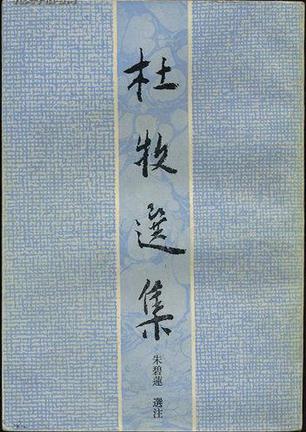 杜牧選集
朱碧蓮 選注